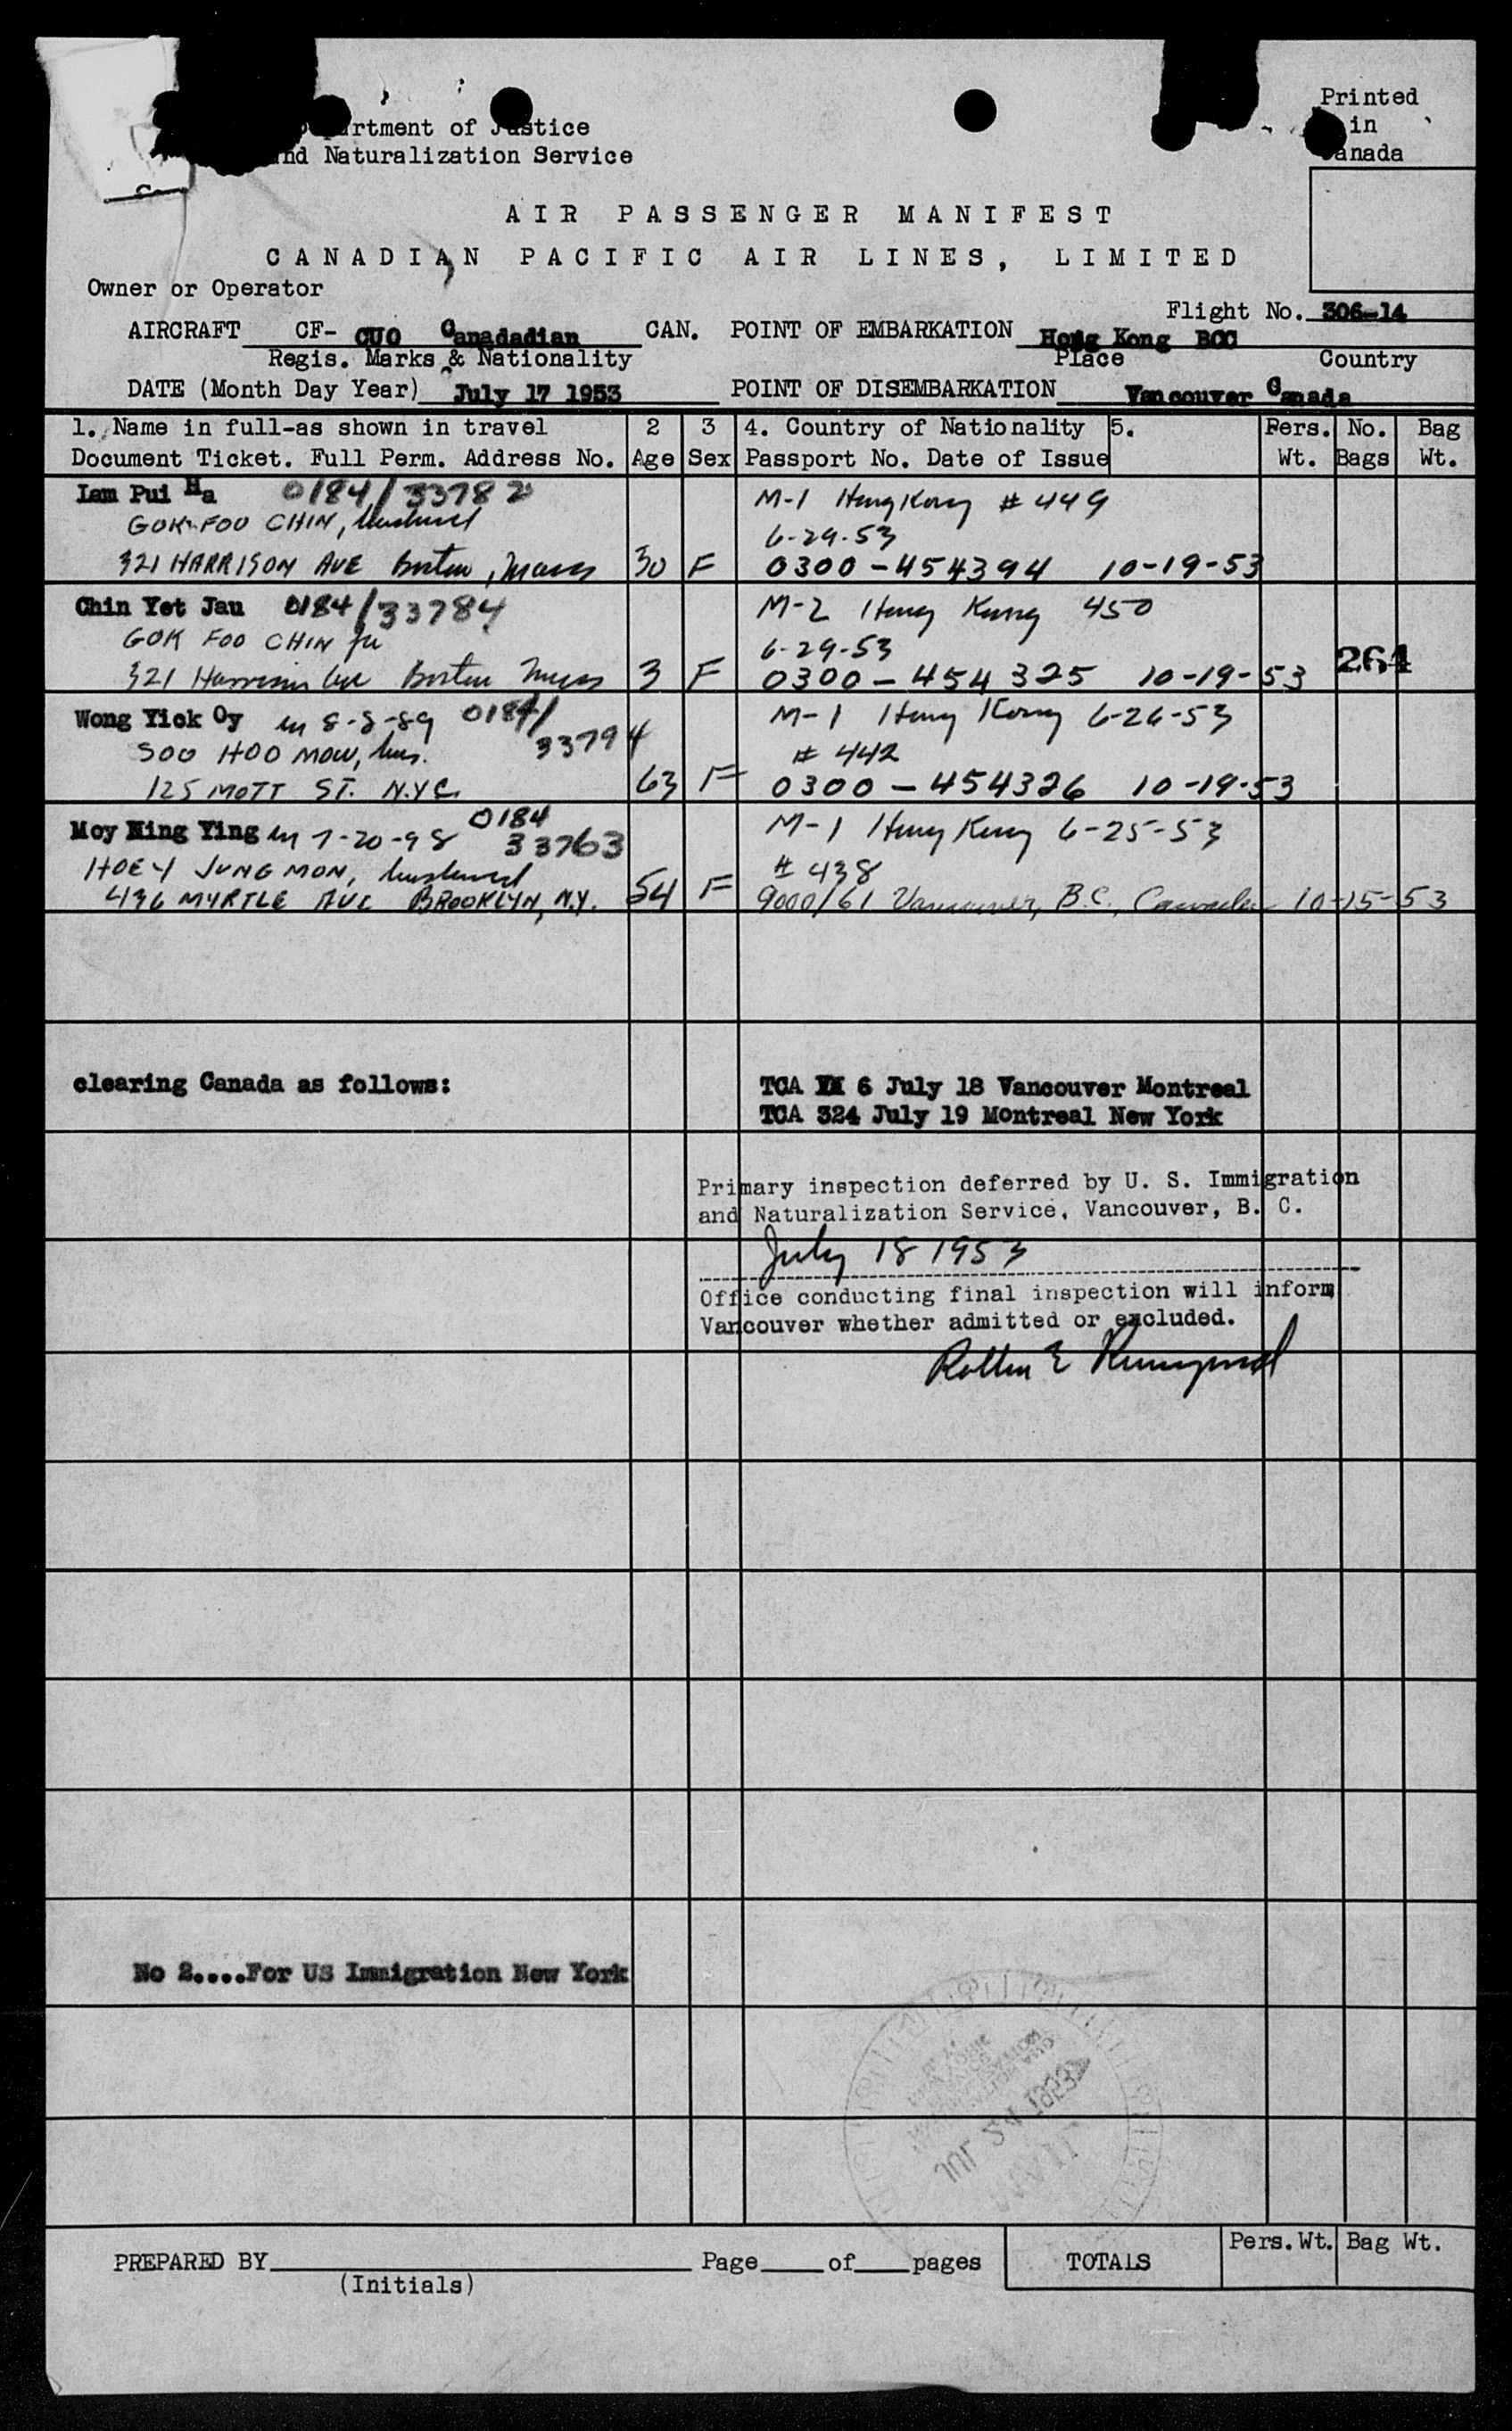 rtment of Justice
nd Naturalization Service
Printed
in
anada
AIR PASSENGER MANIFEST
CANADIAN PACIFIC AIR LINES, LIMITED
Owner or Operator
Flight No. 306-14
AIRCRAFT CF- CUO Canadadian CAN. POINT OF EMBARKATION Hong Kong BCC
Regis. Marks & Nationality Place Country
DATE (Month Day Year) July 17 1953 POINT OF DISEMBARKATION Vancouver Canada
1. Name in full-as shown in travel 2 3 4. Country of Nationality 5. Pers. No. Bag
Document Ticket. Full Perm. Address No. Age Sex Passport No. Date of Issue Wt. Bags Wt.
Lam Pui Ha 0184/33782 M-1 Hong Kong # 449
GOK FOO CHIN, husband 6-29-53
321 HARRISON AVE Boston, Mass 30 F 0300-454394 10-19-53
Chin Yet Jau 0184/33784 M-2 Hong Kong 450
GOK FOO CHIN fa 6-29-53 264
321 Harrison Ave Boston Mass 3 F 0300-454325 10-19-53
Wong Yiek Oy 8-8-89 0184/ M-1 Hong Kong 6-26-53
SOO HOO MOW, hus. 33794 # 442
125 MOTT ST. N.Y.C. 63 F 0300-454326 10-19-53
Moy Ning Ying 7-20-98 0184 M-1 Hong Kong 6-25-53
33763
HOEY JUNG MON, husband # 438
436 MYRTLE AVE BROOKLYN, N.Y. 54 F 9000/61 Vancouver, B.C., Canada 10-15-53
clearing Canada as follows: TCA 6 July 18 Vancouver Montreal
TCA 324 July 19 Montreal New York
Primary inspection deferred by U. S. Immigration
and Naturalization Service, Vancouver, B. C.
July 18 1953
Office conducting final inspection will inform
Vancouver whether admitted or excluded.
No 2....For US Immigration New York
JUL 24 1953
PREPARED BY Page of pages TOTALS Pers. Wt. Bag Wt.
(Initials)